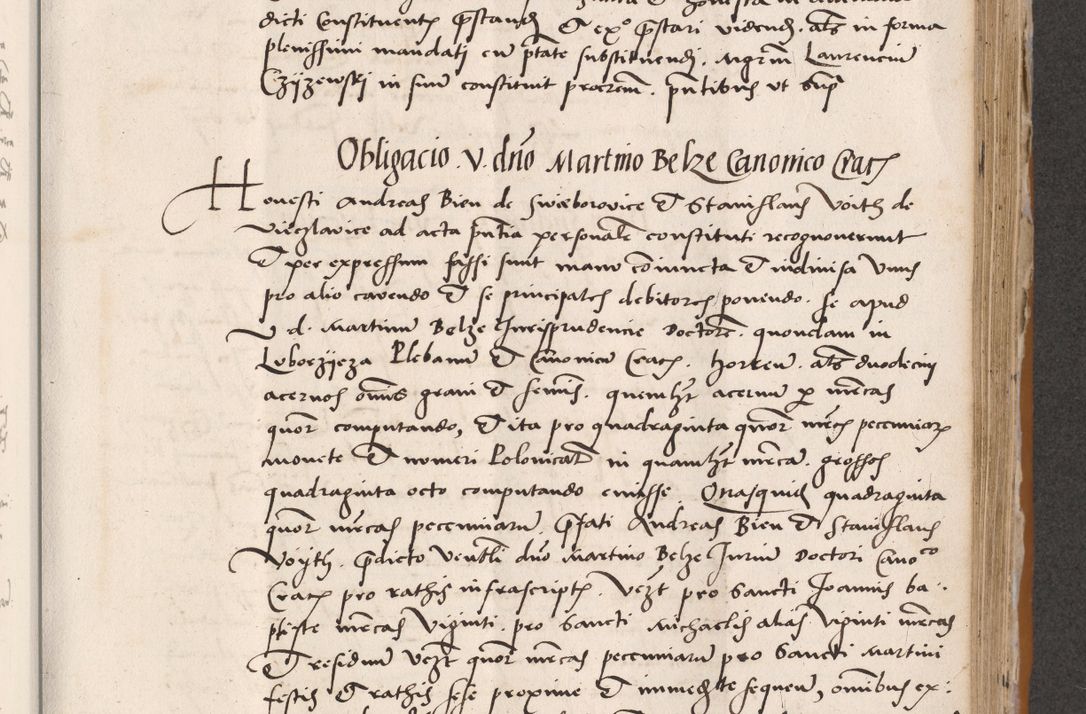 dicti Constituentis pstand Et exo pstari vidend. als in forma
plenissimi mandati cu ptate substituendi. Mgrm Laurenciu
Czyzewski in suu constituit procrem. pntibus vt supra
Obligacio. V. dno Martino Belze Canonico Crac
Honesti Andreas Bien de Swieborovice Et Stanislaus Voith de
Vieczlavice ad acta pntia personale constituti recognoverunt
Et per expressum fassi sunt manu coniuncta Et indivisa Unus
pro alio cavendo Et se principales debitores ponendo. se apud
V d. Martinu Belze Jurisprudencie Doctore. quondam in
Luborzijcza Plebanu Et Canonicu Crac. horreu. als duodecim
acervos omis grani Et semis. quemlzt acervu per mrcas
quor computando, Et ita pro quadraginta quor mrcs pecuniar
monete Et numeri Polonical in quamlzt mrca. grossos
quadraginta octo computando emisse. Quasquid quadraginta
quor mrcas pecuniaru. pfati Andreas Bien Et Stanislaus
Voyth. pdicto Venbli dno Martino Belze Juriu Doctori Canoco
Crac pro rathis infrascriptis. vezt pro Sancti Joannis ba.
ptiste mrcas Viginti. pro Sancti Michaelis alias Viginti mrcas
Et residuu vezt quor mrcas pecuniaru pro Sancti Martini
festis Et rathis sese proxime Et immediate sequen, omibus ex: